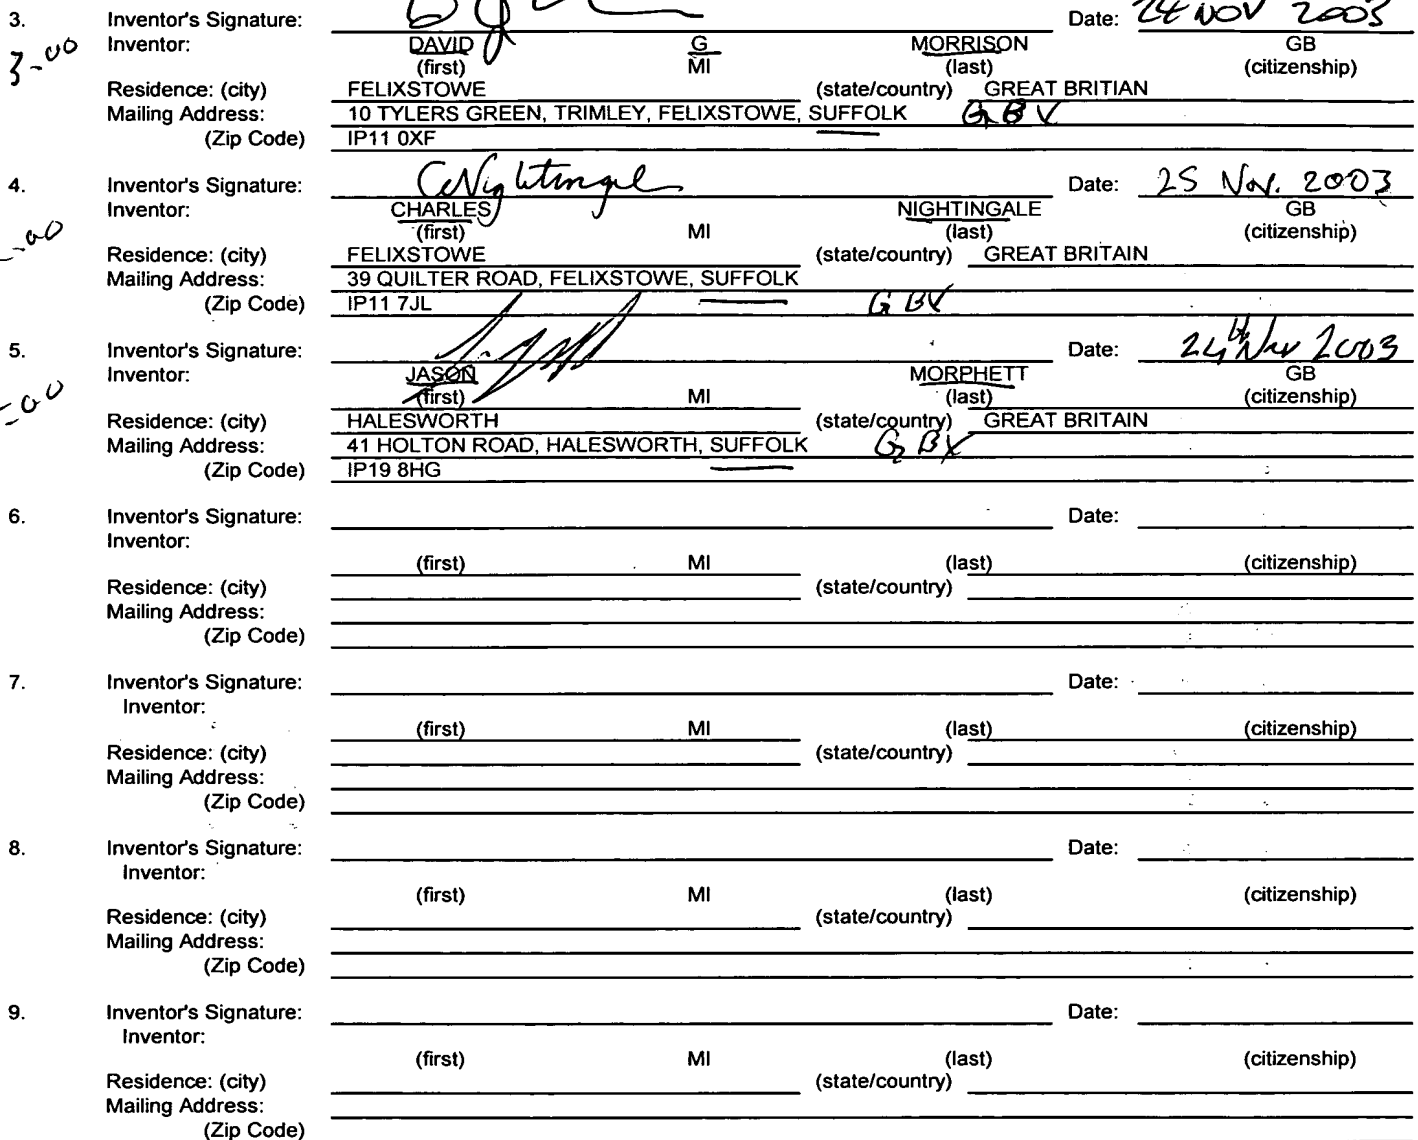 3. Inventor's Signature: Date: 24 NOV 2003
3-00 Inventor: DAVID G MORRISON GB
(first) MI (last) (citizenship)
Residence: (city) FELIXSTOWE (state/country) GREAT BRITIAN
Mailing Address: 10 TYLERS GREEN, TRIMLEY, FELIXSTOWE, SUFFOLK GBX
(Zip Code) IP11 0XF
4. Inventor's Signature: C Nightingale Date: 25 Nov. 2003
Inventor: CHARLES NIGHTINGALE GB
-00 (first) MI (last) (citizenship)
Residence: (city) FELIXSTOWE (state/country) GREAT BRITAIN
Mailing Address: 39 QUILTER ROAD, FELIXSTOWE, SUFFOLK
(Zip Code) IP11 7JL GBX
5. Inventor's Signature: Date: 24th Nov 2003
Inventor: JASON MORPHETT GB
-00 (first) MI (last) (citizenship)
Residence: (city) HALESWORTH (state/country) GREAT BRITAIN
Mailing Address: 41 HOLTON ROAD, HALESWORTH, SUFFOLK GBX
(Zip Code) IP19 8HG
6. Inventor's Signature: Date:
Inventor:
(first) MI (last) (citizenship)
Residence: (city) (state/country)
Mailing Address:
(Zip Code)
7. Inventor's Signature: Date:
Inventor:
(first) MI (last) (citizenship)
Residence: (city) (state/country)
Mailing Address:
(Zip Code)
8. Inventor's Signature: Date:
Inventor:
(first) MI (last) (citizenship)
Residence: (city) (state/country)
Mailing Address:
(Zip Code)
9. Inventor's Signature: Date:
Inventor:
(first) MI (last) (citizenship)
Residence: (city) (state/country)
Mailing Address:
(Zip Code)